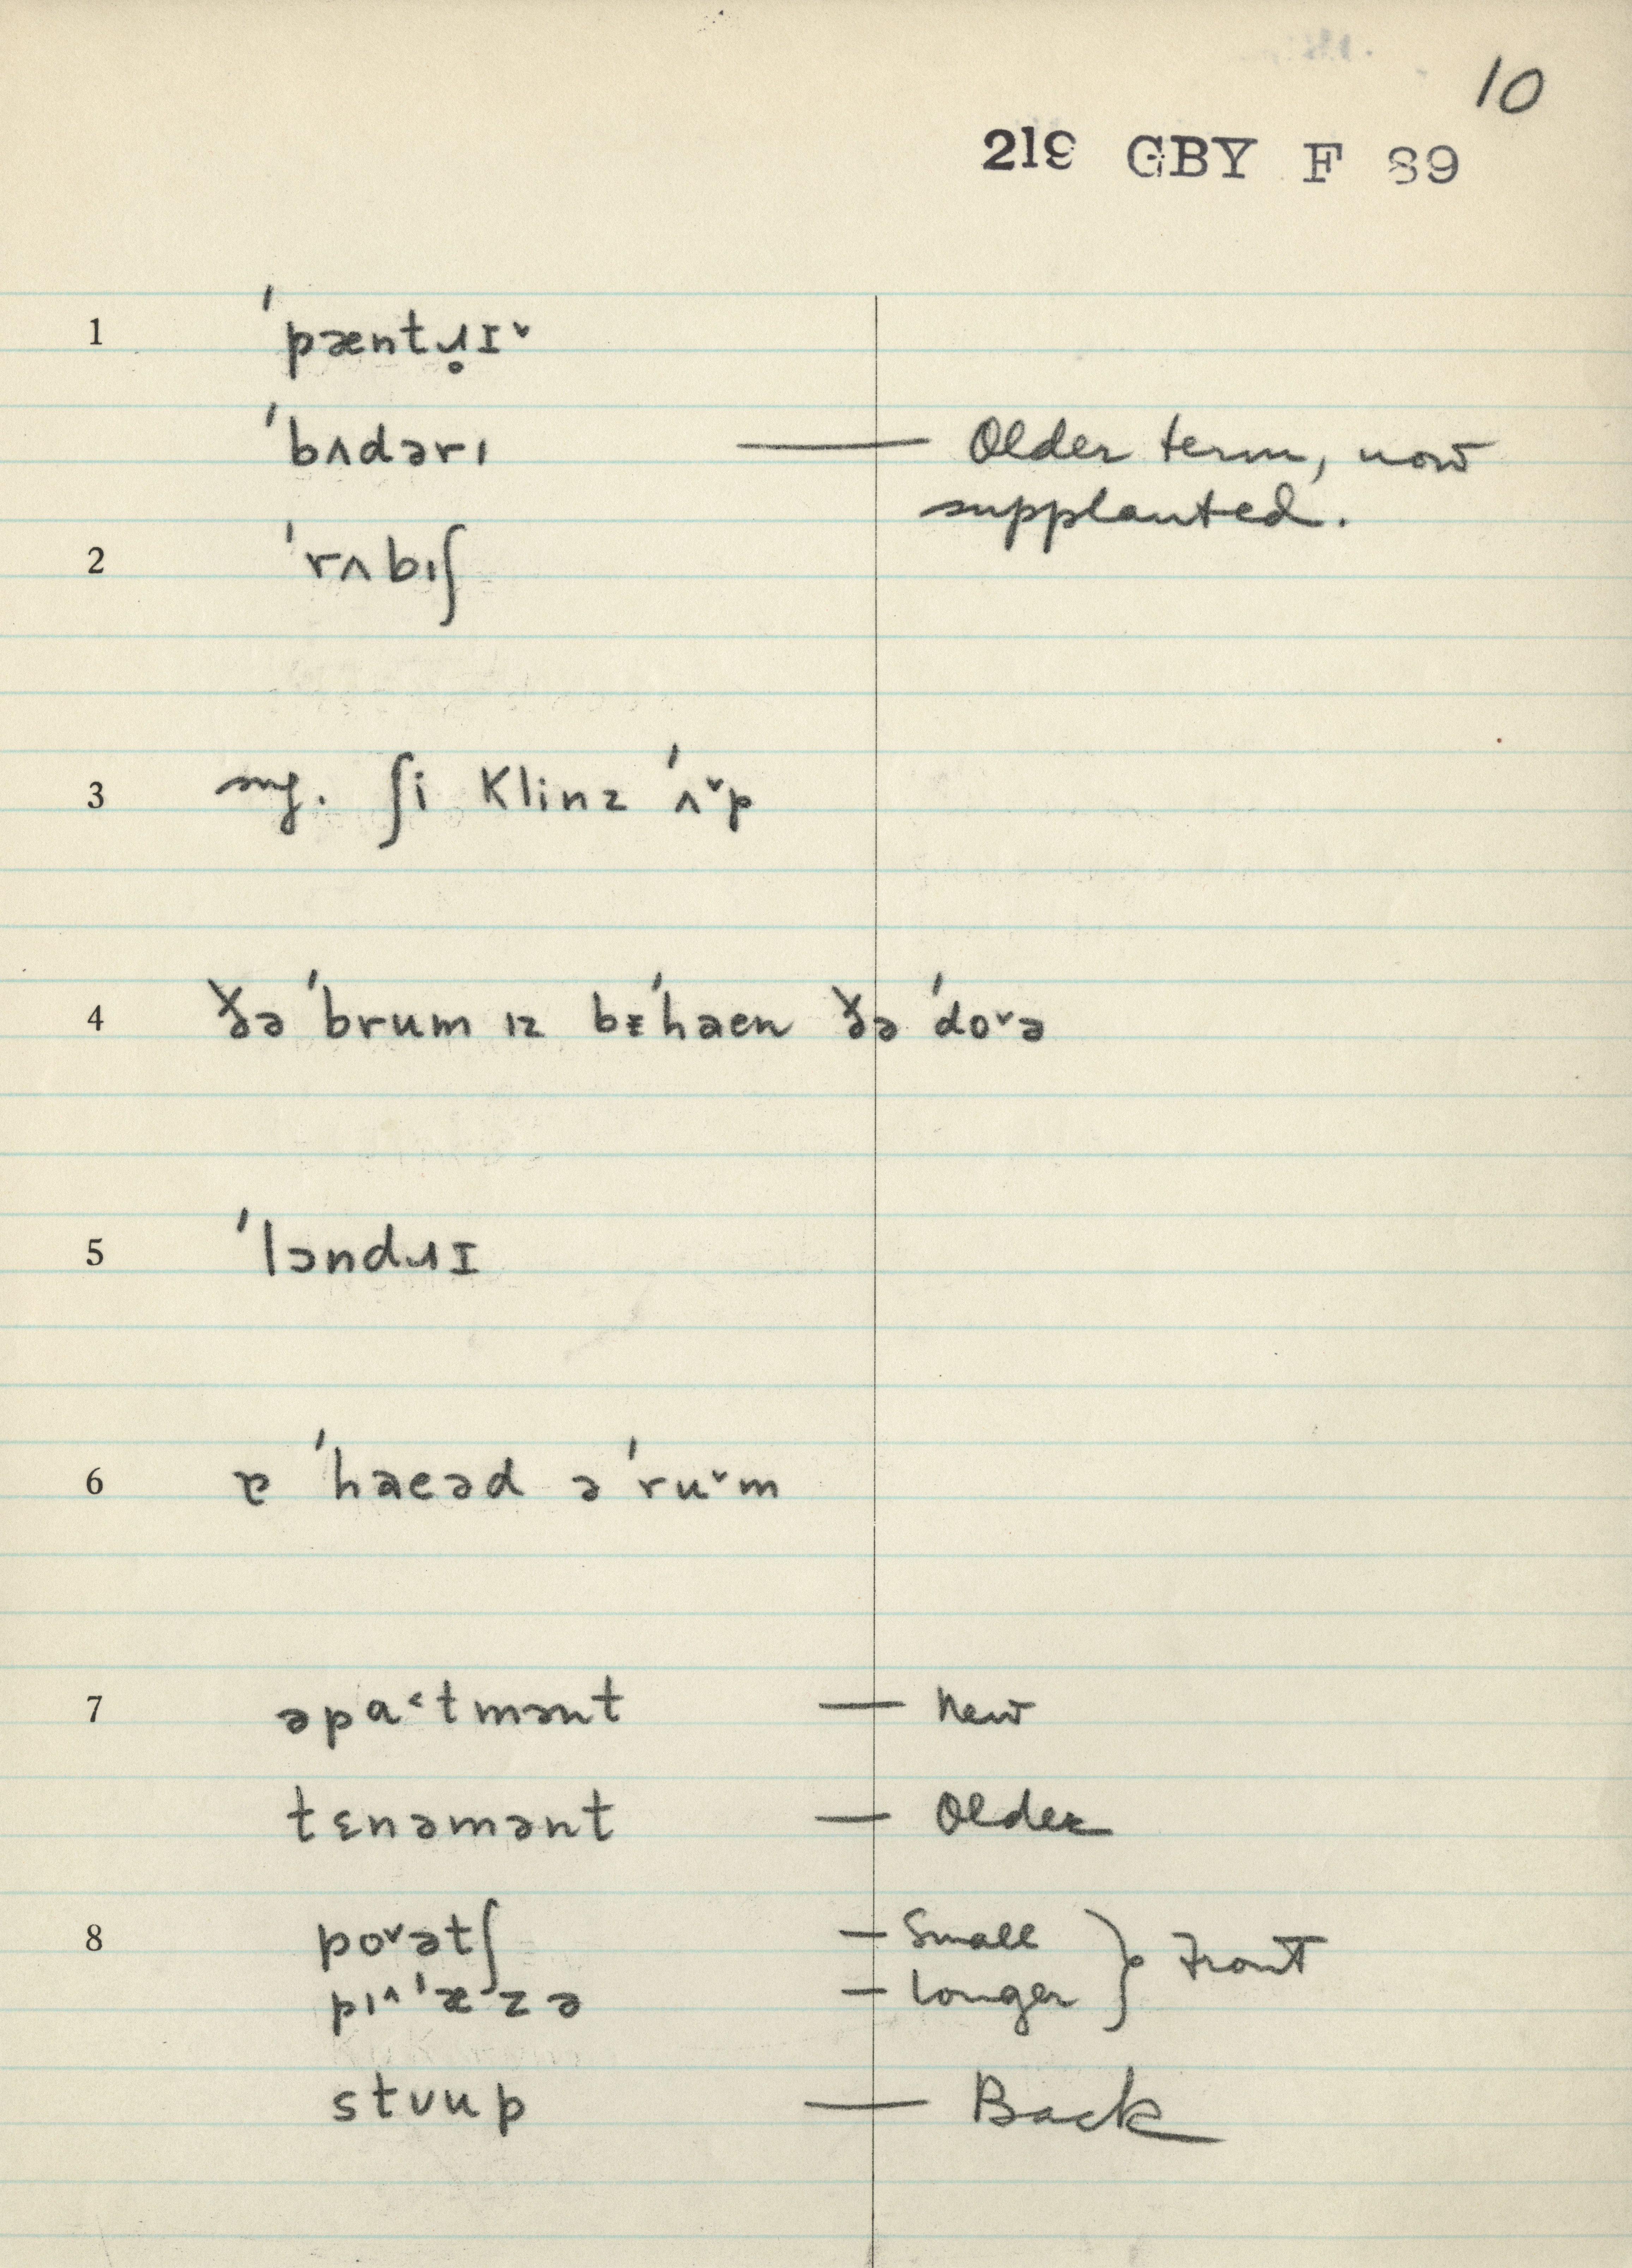 10
219 GBY F 89
1 ˈpæntɹ̥ɪˇ
ˈbʌdərı — Older term, now
supplanted.
2 ˈrʌbıʃ
3 sug. ʃi Klinz ˈʌˇp
4 ðə ˈbrum ız bᵻˈhaen ðə ˈdoˇə
5 ˈlɔndɹɪ
6 ɐ ˈhaeəd ə ˈruˇm
7 əpa˂tmənt — New
tɛnəmənt — Older
8 poˇətʃ — Small } Front
pı^ˈæzə — Longer
stʊup — Back